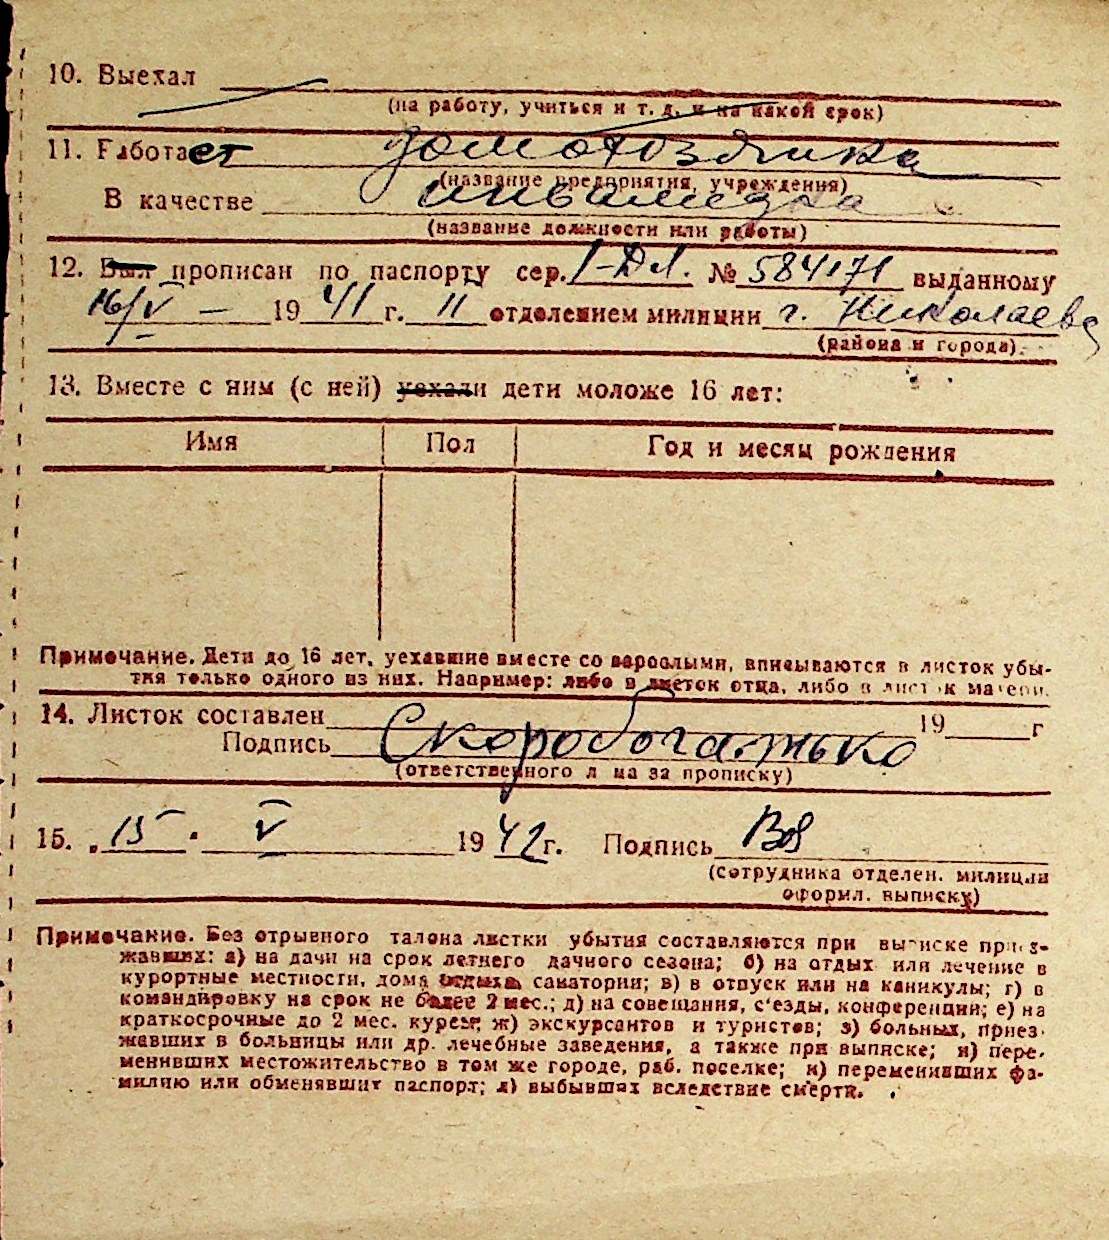 10. Выехал
(на работу, учиться и т. д. и на какой срок)
11. Работает домохозяйка
(название предприятия, учреждения)
В качестве
(название должности или работы)
12. Был прописан по паспорту сер. I-ДЛ. № 584171 выданному
16/V – 1941 г. 11 отделением милиции г. Николаева
(района и города).
13. Вместе с ним (с ней) уехали дети моложе 16 лет:
Имя Пол Год и месяц рождения
Примечание. Дети до 16 лет, уехавшие вместе со взрослыми, вписываются в листок убы-
тия только одного из них. Например: либо в листок отца, либо в листок матери.
14. Листок составлен 19 г
Подпись Скоробогатько
(ответственного лица за прописку)
15. 15. V 1942 г. Подпись
(сотрудника отделен. милиции
оформл. выписку)
Примечание. Без отрывного талона листки убытия составляются при выписке приез-
жавших: а) на дачи на срок летнего дачного сезона; б) на отдых или лечение в
курортные местности, дома отдыха, санатории; в) в отпуск или на каникулы; г) в
командировку на срок не более 2 мес.; д) на совещания, с'езды, конференции; е) на
краткосрочные до 2 мес. курсы; ж) экскурсантов и туристов; з) больных, приез-
жавших в больницы или др. лечебные заведения, а также при выписке; и) пере-
менивших местожительство в том же городе, раб. поселке; к) переменивших фа-
милию или обменявших паспорт; л) выбывших вследствие смерти.